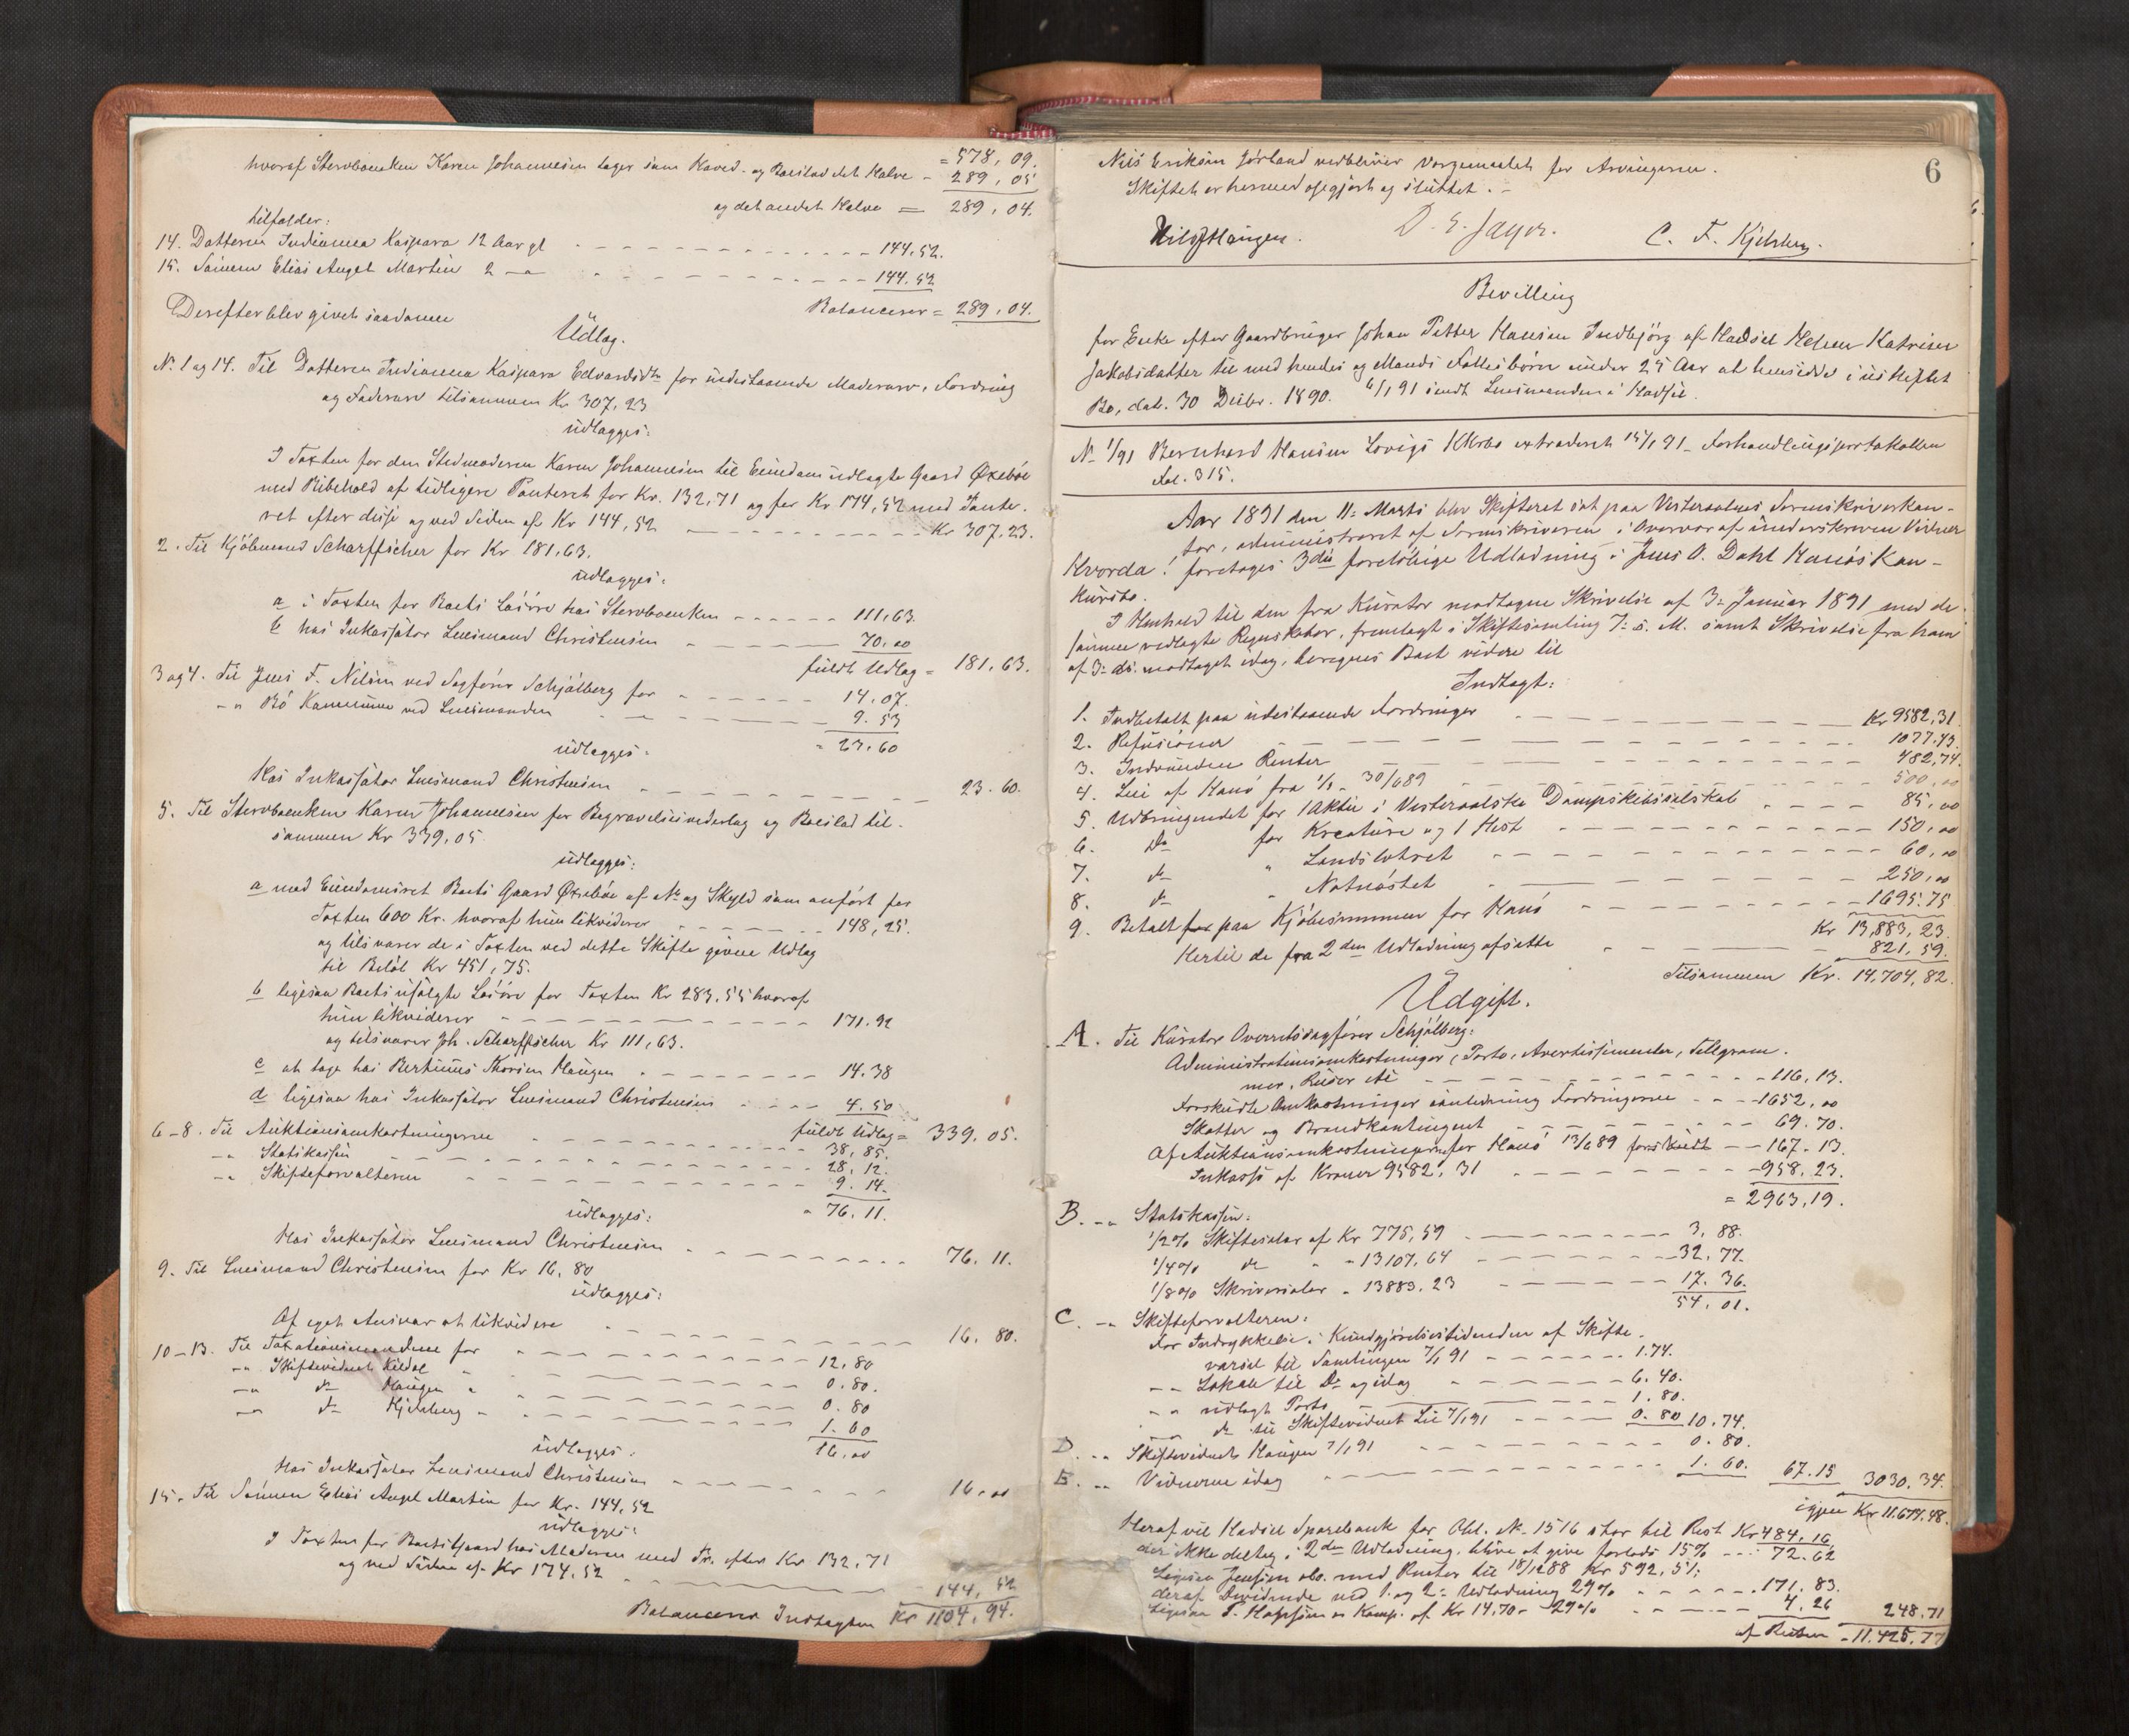 = 578,09.
hvoraf Stervboenken Karen Johannesen tager som Hoved- og Boeslod det Halve = 289,05
og det andet Halve = 289,04.
tilfalder:
14. Datteren Indianna Kaspara 12 Aar gl. 144,52.
15. Sønnen Elias Angel Martin 2 — 144.52
Balancerer = 289,04.
Derefter blev givet saadanne
Udlæg.
No 1 og 14. Til Datteren Indianna Kaspara Edvardsdtr for indestaaende Moderarv, Fordring
og Faderarv tilsammen Kr 307,23
udlægges:
I Taxten for den Stedmoderen Karen Johannesen til Eiendom udlagte Gaard Øxebøe
med Bibehold af tidligere Panteret for Kr. 132,71 og for Kr 174,52 med Pante-
ret efter disse og ved Siden af Kr 144,52 Kr 307.23.
2. Til Kjøbmand Scharffscher for Kr 181,63.
udlægges:
a i Taxten for Boets Løsøre hos Stervboenken 111,63.
b hos Inkassator Lensmand Christensen 70.00
fuldt Udlæg = 181.63.
3 og 4. Til Jens F. Nilsen ved Sagfører Schjølberg for 14.07.
-"- Bø Kommune ved Lensmanden 9.53
= 23.60
udlægges:
Hos Inkassator Lensmand Christensen 23.60.
5. Til Stervboenken Karen Johannesen for Begravelsesvederlag og Boeslod til-
sammen Kr 339,05
udlægges:
a med Eiendomsret Boets Gaard Øxebøe af No og Skyld som anført for
Taxten 600 Kr. hvoraf hun likviderer 148,25.
og tilsvarer de i Taxten ved dette Skifte givne Udlæg
til Beløb Kr 451,75.
b ligesaa Boets usolgte Løsøre for Taxten Kr 283,55 hvoraf
hun likviderer 171.92
og tilsvarer Joh. Scharffscher Kr 111,63.
c at tage hos Bertinus Thorsen Haugen 14.38
d ligesaa hos Inkassator Lensmand Christensen 4.50
fuldt Udlæg = 339.05.
6-8. Til Auktionsomkostningerne 38,85.
-"- Statskassen 28,12.
-"- Skifteforvalteren 9.14.
= 76.11.
udlægges:
Hos Inkassator Lensmand Christensen 76.11.
9. Til Lensmand Christensen for Kr 16,80
udlægges:
Af eget Ansvar at likvidere 16.80.
10-13. Til Taxationsmændene for 12,80
-"- Skiftevidnet Kildal " 0.80.
-"- do Haugen " 0.80
-"- do Kjelsberg " 1.60
16,00
udlægges:
Hos Inkassator Lensmand Christensen 16.00
15. Til Sønnen Elias Angel Martin for Kr. 144,52
udlægges:
I Taxten for Boets Gaard hos Moderen med Pr. efter Kr 132,71
og ved Siden af Kr 174.52 144,52
Balancerer Indtægten Kr 1104,94.
6
Nils Eriksen Jørland vedbliver Værgemaalet for Arvingerne.
Skiftet er hermed opgjort og sluttet.
Nils Haugen. D. E. Jayer. C. F. Kjelsberg.
Bevilling
for Enke efter Gaardbruger Johan Petter Hansen Indbjörg af Hadsel Helene Katrine
Jakobsdatter til med hendes og Mands Fællesbörn under 25 Aar at hensidde i uskiftet
Bo, dat. 30 Decbr. 1890. 6/1 91 sendt Lensmanden i Hadsel.
No 1/91 Bernhard Hansen Lovigs Kkrbo extraderet 15/1 91 Forhandlingsprotokollen
Fol. 315.
Aar 1891 den 11. Marts blev Skifteret sat paa Vesteraalens Sorenskriverkon-
tor, administreret af Sorenskriveren i Overvær af underskrevne Vidner
Hvorda: foretoges 3die foreløbige Udlodning i Jens O. Dahl Hanøs Kon-
kursbo.
I Henhold til den fra Kurator modtagne Skrivelse af 3. Januar 1891 med de
samme vedlagte Regnskaber, fremlagt i Skiftesamling 7. s. M. samt Skrivelse fra ham
af 3. ds. modtaget idag, beregnes Boet videre til
Indtægt:
1. Indbetalt paa udestaaende Fordringer Kr 9582,31
2. Refusioner 1077.43.
3. Indvundne Renter 482,74.
4. Leie af Hanø fra 1/1 - 30/6 89 500,00
5. Udbringendet for 1 Aktie i Vesteraalske Dampskibsselskab 85,00
6. do for Kreature og 1 Hest 150,00
7. do " Landslotret 60,00
8. do " Notnøstet 250,00
9. Betalt for paa Kjøbesummen for Hanø 1695.75
Kr 13,883,23.
Hertil de fra 2den Udlodning afsatte 821,59.
Tilsammen Kr. 14,704,82.
Udgift.
A. Til Kurator Overretssagfører Schjølberg:
Administrationsomkostninger (Porto, Avertissementer, Telegram-
mer, Reiser etc 116,13.
Forskudte Omkostninger i anledning Fordringerne 1652,00
Skatter og Brandkontingent 69.70.
Af Auktionsomkostningerne for Hanø 13/6 89 forskudt 167.13.
Inkasso af Kroner 9582,31 958.23.
= 2963,19.
B. -"- Statskassen:
1/2% Skiftesalær af Kr 775,59 3,88.
1/4% do " " 13107,64 32.77.
1/8% Skriversalær " 13883.23 17.36.
54,01.
C. -"- Skifteforvalteren:
For Indrykkelse i Kundgjørelsestidenden af Skifte-
varsel til Samlingen 7/1 91 1.74.
-"- Lokale til do og idag 6.40.
-"- udlagt Porto 1.80.
-"- do til Skiftevidnet Lie 7/1 91 0.80 10.74.
D. -"- Skiftevidnet Haugen 7/1 91 0.80.
E. -"- Vidnerne idag 1.60. 67.15 3030.34.
igjen Kr 11.674.48.
Heraf vil Hadsel Sparebank for Obl. No 1516 stor til Rest Kr 484,16,
der ikke deltog i 2den Udlodning, blive at give forlods 15% 72.62
Ligesaa Jensen obs. med Renter til 18/12 88 Kr 592,51;
deraf Dividende ved 1. og 2. Udlodning 29% 171.83.
Ligesaa T. & Komp. af Kr 14,70 - 29% 4.26 248,71
af Resten 11.425,77